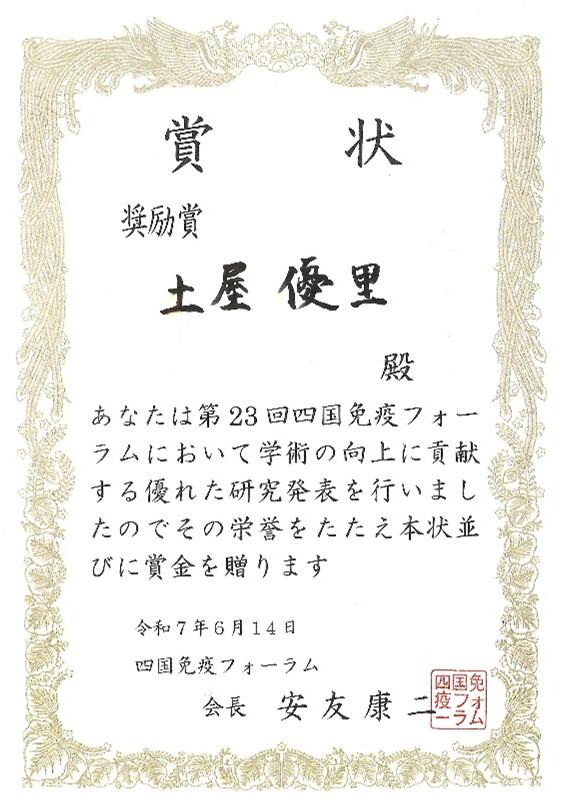 賞状
奨励賞
土屋 優里
殿
あなたは第23回四国免疫フォー
ラムにおいて学術の向上に貢献
する優れた研究発表を行いまし
たのでその栄誉をたたえ本状並
びに賞金を贈ります
令和7年6月14日
四国免疫フォーラム
会長 安友康二
四国免疫フォーラム